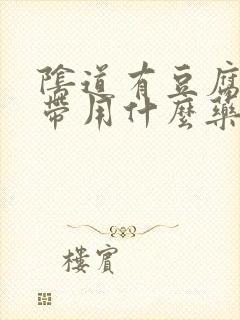 陰道有豆腐
帶用什麼藥
樓賓